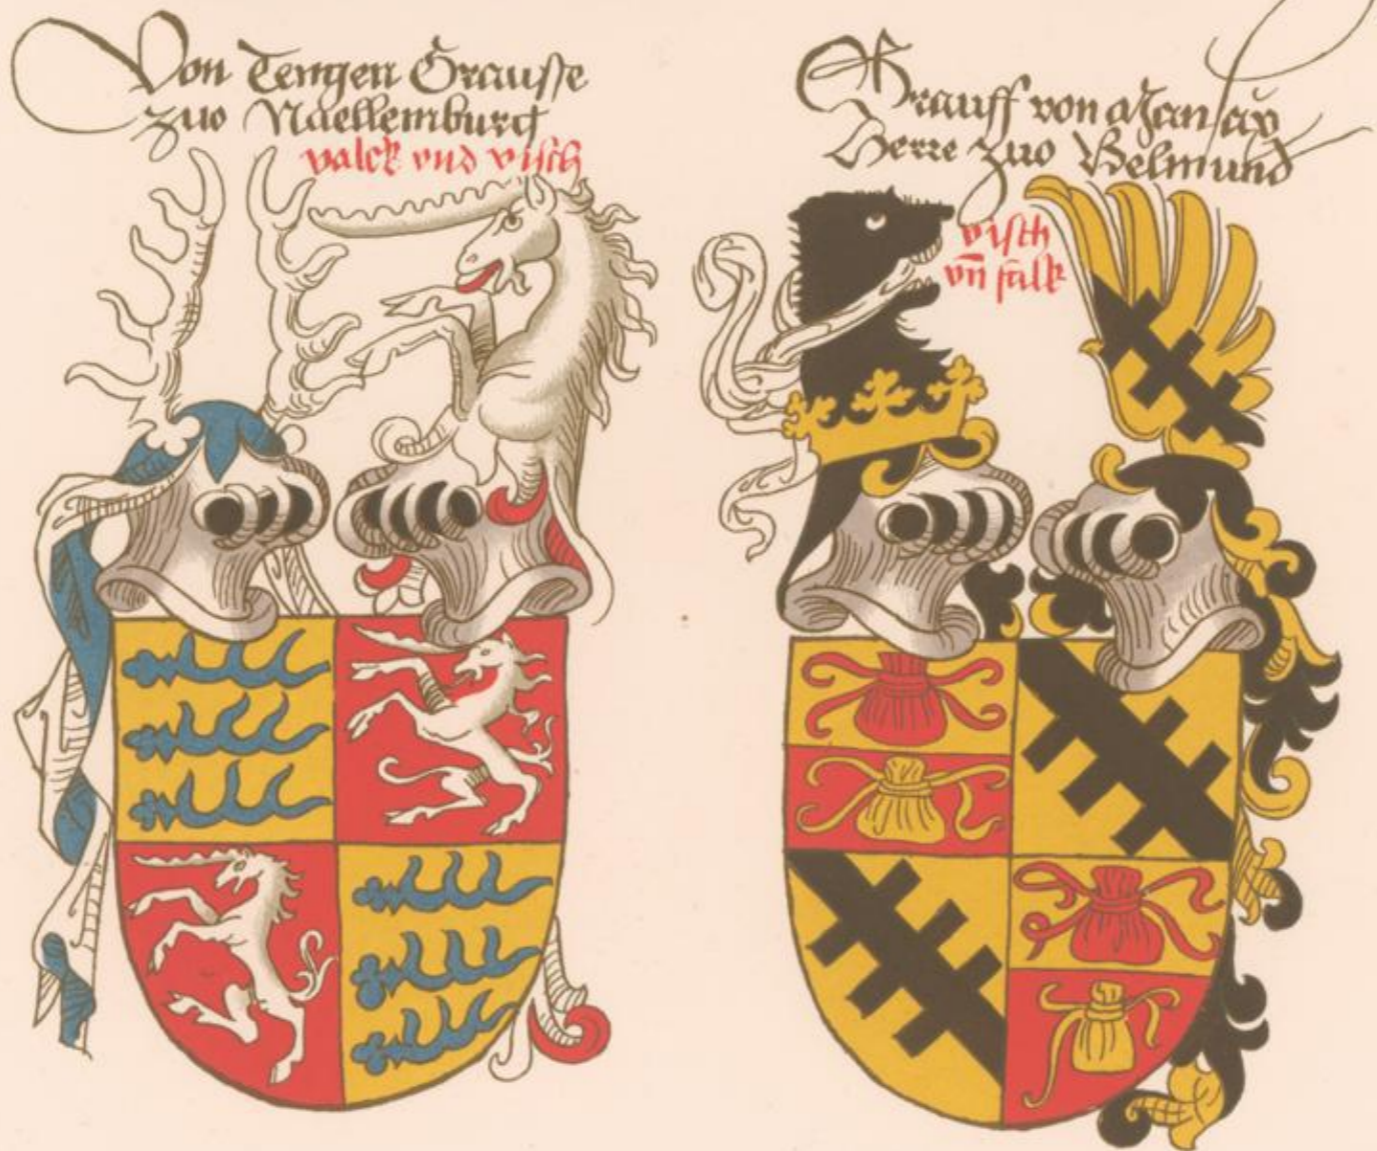 Von Tengen Grausse
zuo Naellemburg
valck vnd visch
Grauff von
Herre zuo Belmund
visch
vñ falk